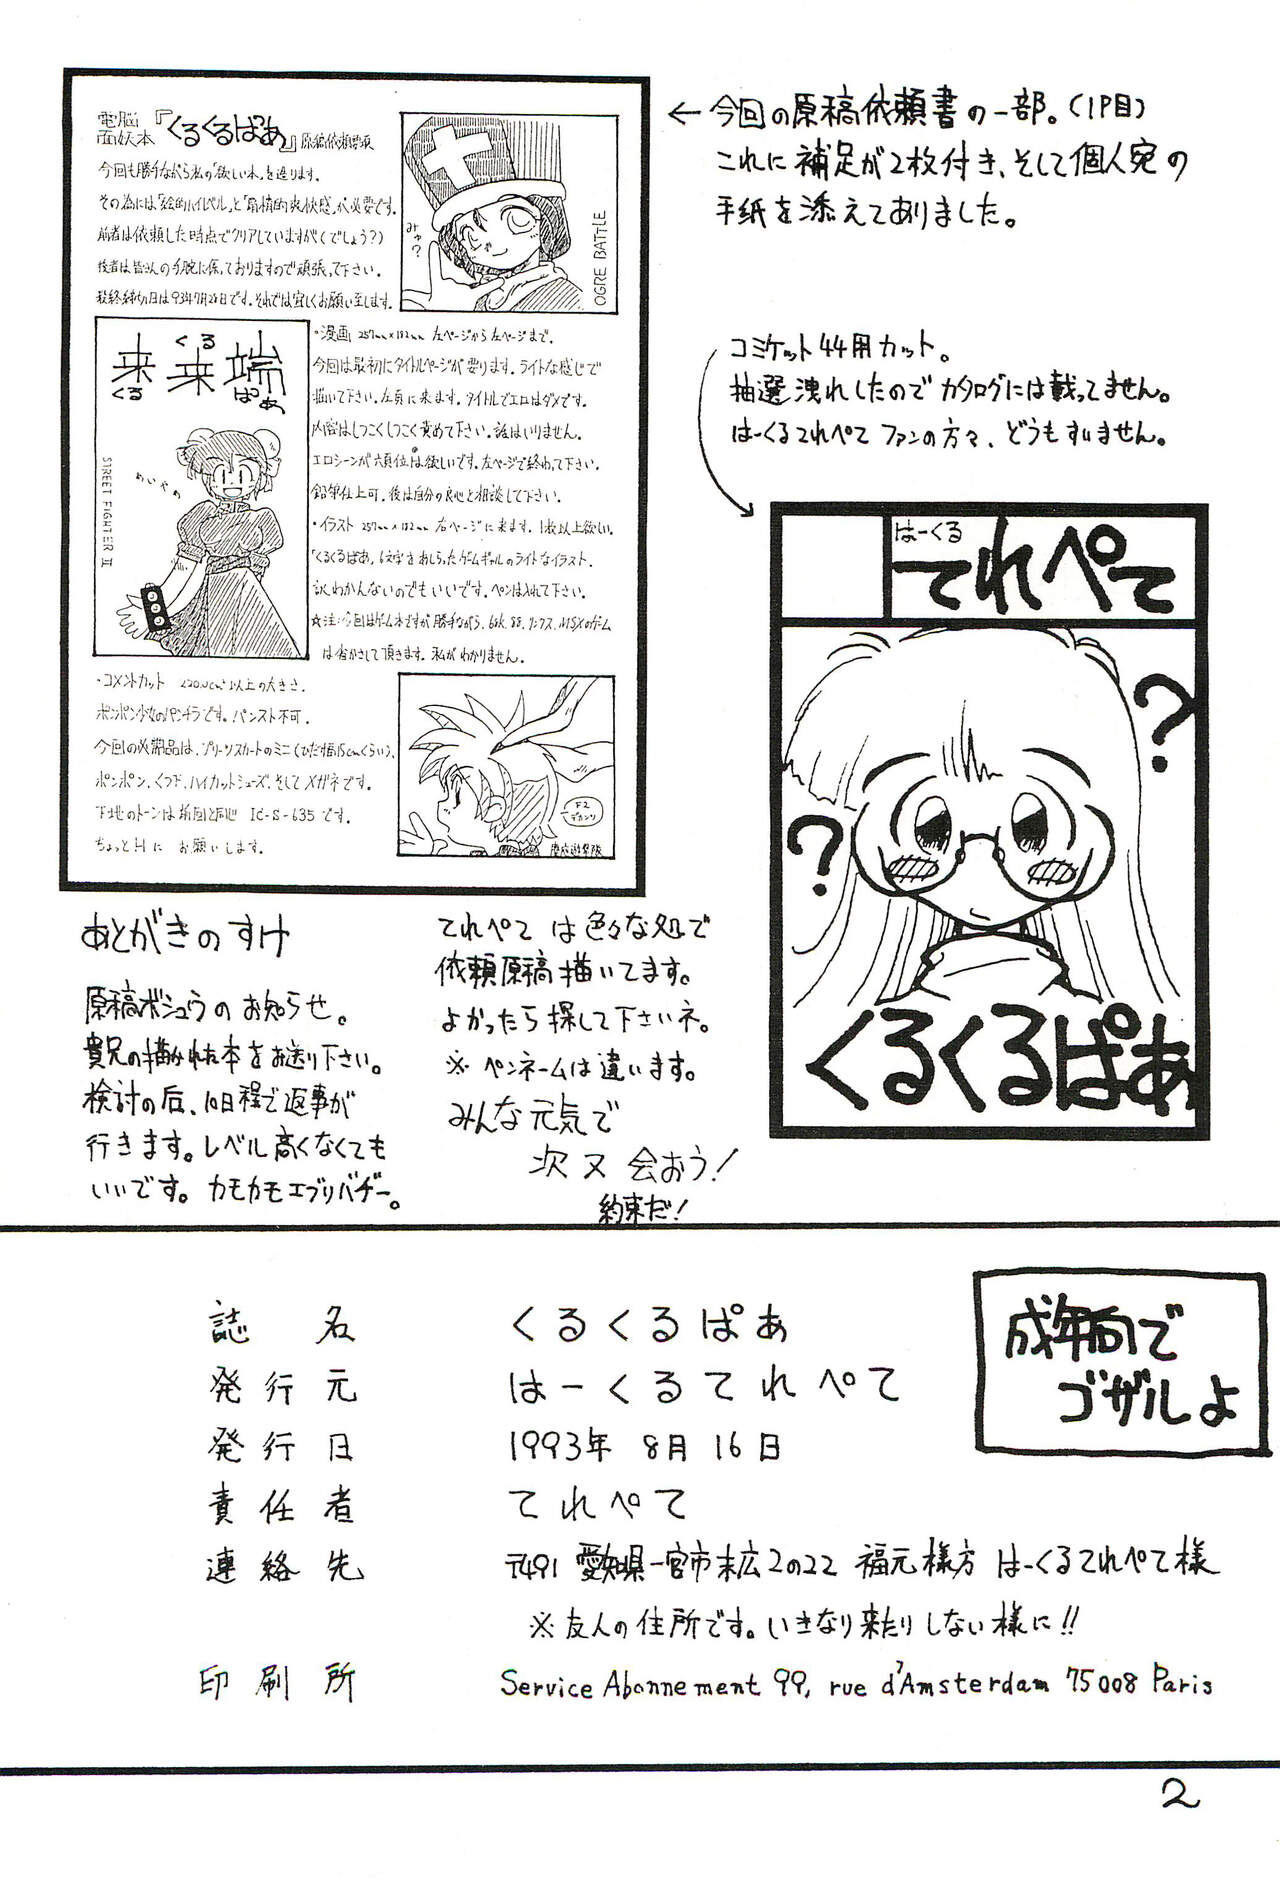 電脳
面妖本『くるくるぱあ』原稿依頼要項
今回も勝手ながら私の「欲しい本」を造ります。
その為には「絵的ハイレベル」と「扇情的爽快感」が必要です。
前者は依頼した時点でクリアしていますが(でしょう?)
後者は皆さんの手腕に係っておりますので頑張って下さい。
最終締切日は93年7月26日です。それでは宜しくお願い致します。
みゅ?
OGRE BATTLE
くる
来来端
くる ぱあ
めいやぁ
STREET FIGHTER II
・漫画 257mm×182mm 左ページから左ページまで。
今回は最初にタイトルページが要ります。ライトな感じで
描いて下さい。左頁に来ます。タイトルでエロはダメです。
内容はしつこくしつこく責めて下さい。話はいりません。
エロシーンが六頁位は欲しいです。左ページで終わって下さい。
鉛筆仕上可。後は自分の良心と相談して下さい。
・イラスト 257mm×182mm 右ページに来ます。1枚以上欲しい。
「くるくるぱあ」文字をあしらったゲームギャルのライトなイラスト。
訳わかんないのでもいいです。ペンは入れて下さい。
☆注:今回はゲーム本ですが勝手ながら、68K、88、リンクス、MSXのゲーム
は省かさして頂きます。私がわかりません。
・コメントカット 以上の大きさ。
ポンポン少女のパンチラです。パンスト不可。
今回の必需品は、プリーツスカートのミニ(ひだ幅15cmくらい)、
ポンポン、くつ下、ハイカットシューズ、そしてメガネです。
下地のトーンは前回と同じ IC-S-635です。
ちょっとHに お願いします。
F2
デカンソ
←今回の原稿依頼書の一部。(1P目)
これに補足が2枚付き、そして個人宛の
手紙を添えてありました。
コミケット44用カット。
抽選洩れしたのでカタログには載ってません。
はーくるてれぺて ファンの方々、どうもすいません。
はーくる
てれぺて
?
?
くるくるぱあ
あとがきのすけ
原稿ボシュウのお知らせ。
貴兄の描かれた本をお送り下さい。
検討の后、10日程で返事が
行きます。レベル高くなくても
いいです。カモカモエブリバデー。
てれぺて は色々な処で
依頼原稿描いてます。
よかったら探して下さいネ。
※ペンネームは違います。
みんな元気で
次又会おう!
約束だ!
成年向で
ゴザルよ
誌名 くるくるぱあ
発行元 はーくるてれぺて
発行日 1993年 8月 16日
責任者 てれぺて
連絡先 〒491 愛知県一宮市末広2の22 福元様方 はーくるてれぺて様
※友人の住所です。いきなり来たりしない様に!!
印刷所 Service Abonnement 99, rue d'Amsterdam 75008 Paris
2